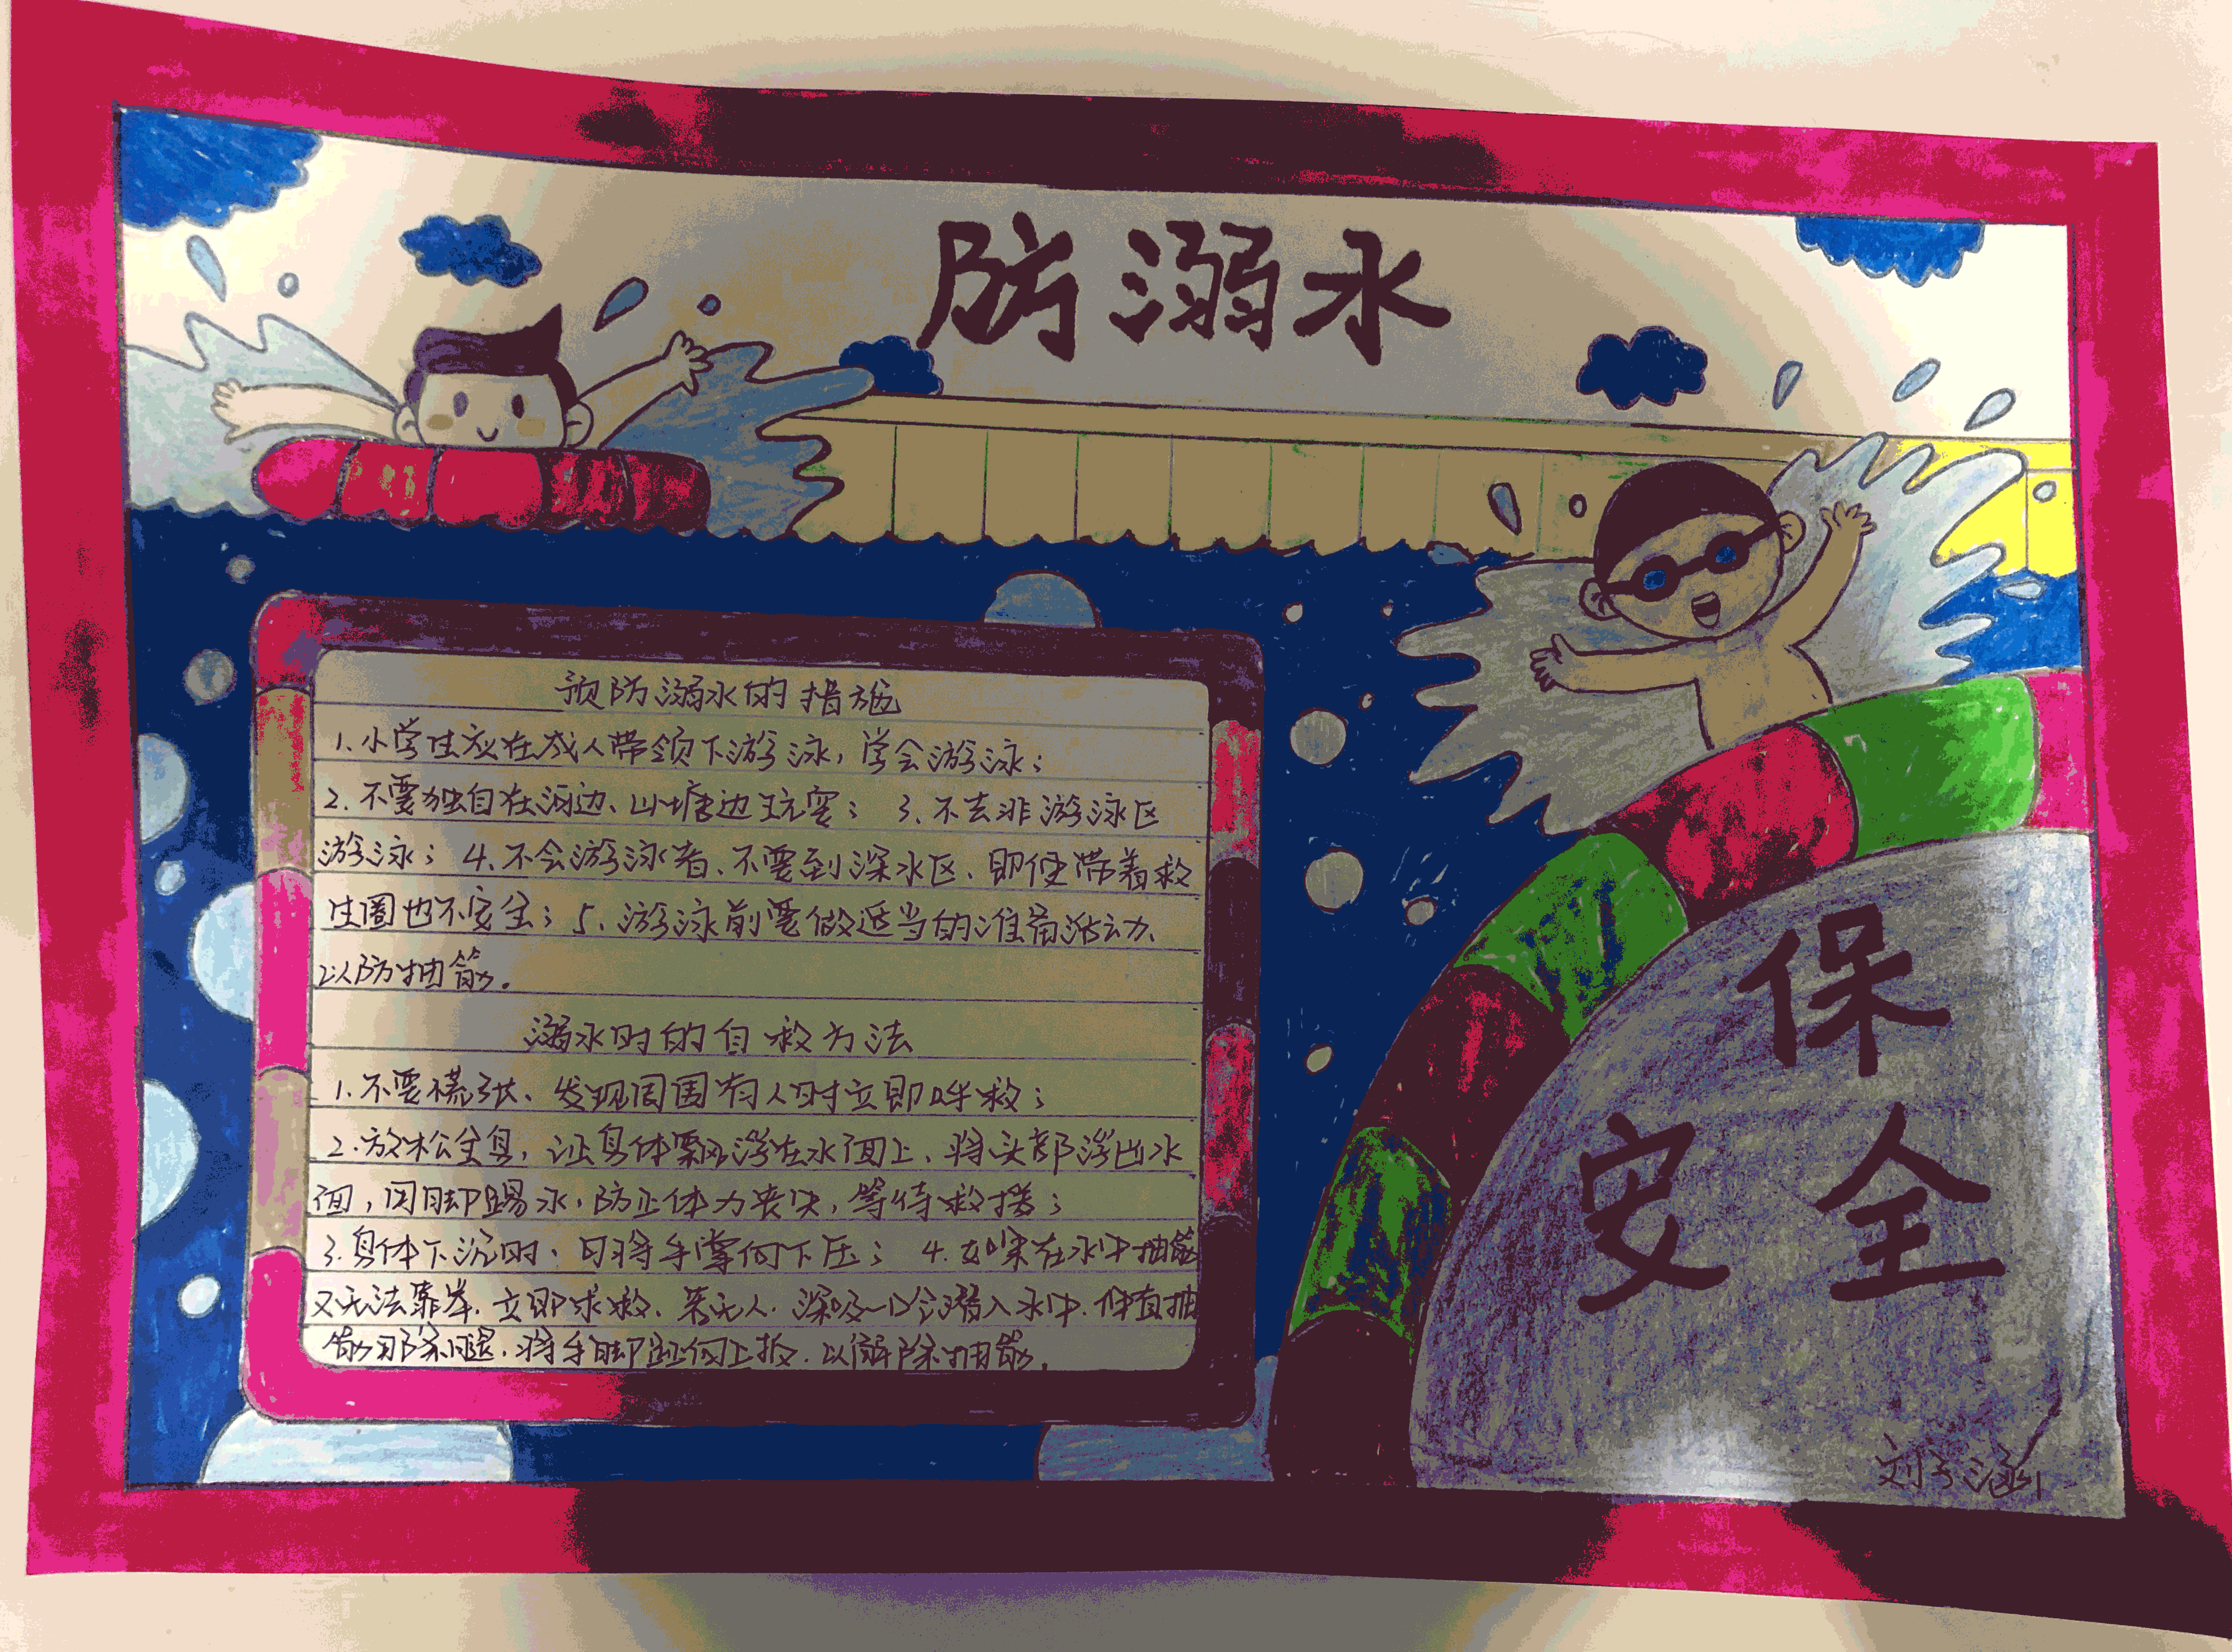 防溺水
预防溺水的措施
1.小学生应在成人带领下游泳，学会游泳；
2.不要独自在河边、山塘边玩耍； 3.不去非游泳区
游泳；4.不会游泳者、不要到深水区、即使带着救
生圈也不安全；5.游泳前要做适当的准备活动、
以防抽筋。
溺水时的自救方法
1.不要慌张、发现周围有人时立即呼救；
2.放松全身，让身体飘浮在水面上、将头部浮出水
面，用脚踢水，防止体力丧失，等待救援；
3.身体下沉时，可将手掌向下压； 4.如果在水中抽筋
又无法靠岸，立即求救、若无人，深吸一口气潜入水中、伸直抽
筋那条腿，将手脚趾向上扳，以解除抽筋。
保
安全
刘子涵